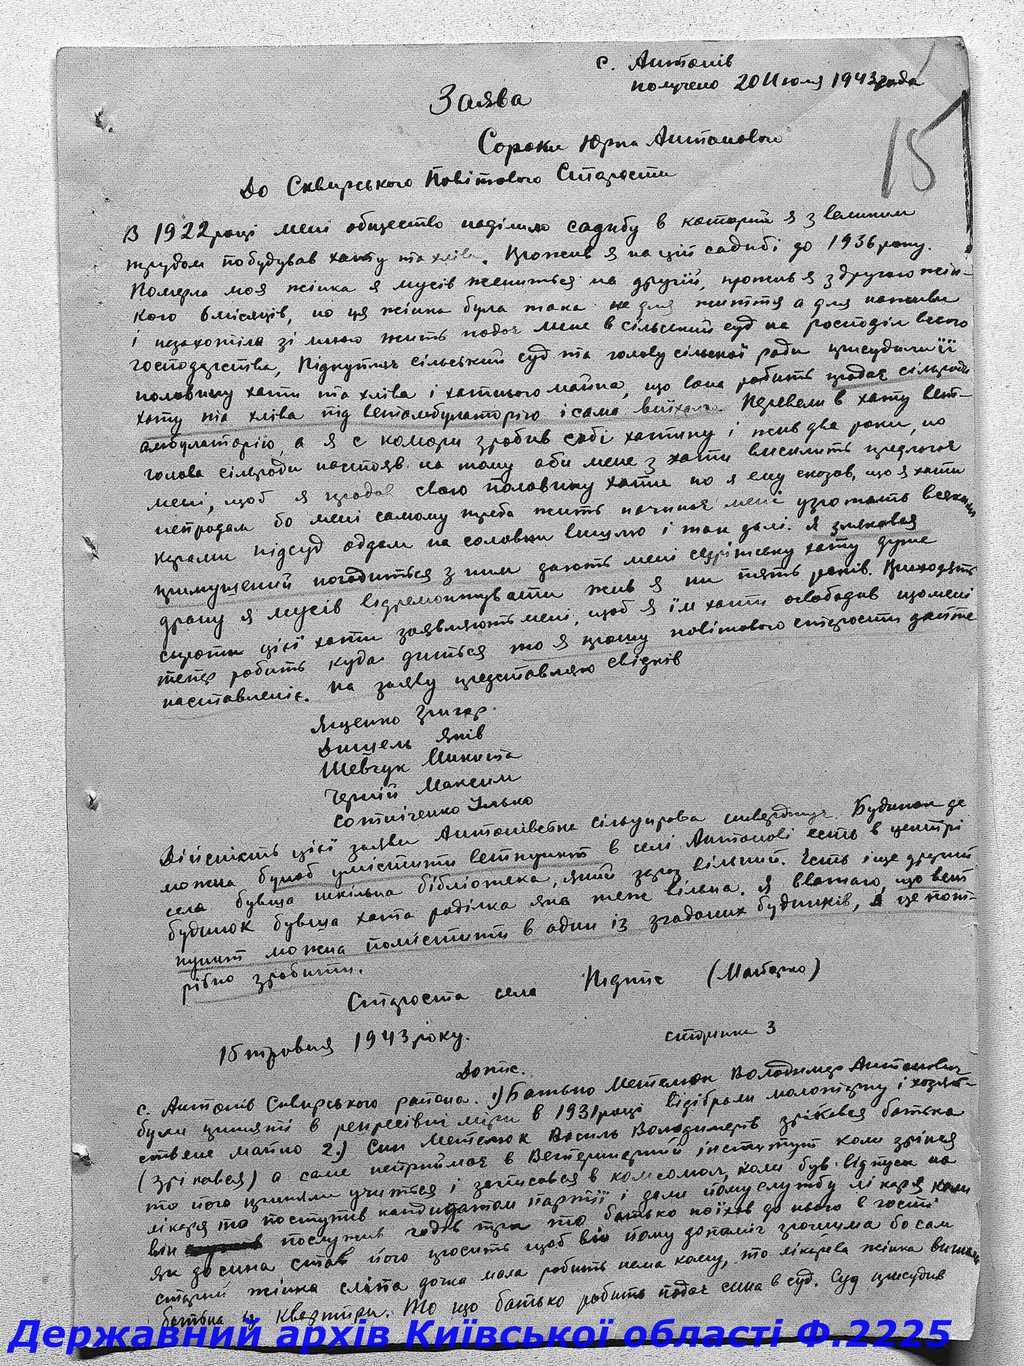 с. Антонів
получено 20 Июля 1943 года
Заява
Сороки Юрка Антоновоч
До Сквирського Повітового Старости
15
В 1922 році мені общество наділило садибу в котарій я з великим
трудом побудував хату та хлів. Прожив я на цій садибі до 1936 року.
Померла моя жінка я мусів жениться на другій, прожив я з другою жін-
кою 6 місяців, но ця жінка була така не для життя а для наживи
і незахотіла зі мною жить подає мене в сільський суд на росподіл всего
господарства, Підкупила сільський суд та голову сільської ради присудили її
половину хати та хліва і хатнього майна, що вона робить продає сільради
хату та хліва під ветамбулаторію і сама виїхала. Перевели в хату вет-
амбулаторію, а я с комори зробив собі хатину і жив два роки, но
голова сільради настояв на тому аби мене з хати виселить предлогає
мені, щоб я продав свою половину хати но я ему сказав, що я хати
непродам бо мені самому треба жить начинає мені угрожать всякими
мірами підсуд оддам на соловки вишлю і так далі. Я злякався
примушений погодиться з ним дають мені сирітську хату дуже
драну я мусів відремонтувати жив я ни пять років. Приходять
сироти цієї хати заявляють мені, щоб я їм хати освободив що мені
тепер робить куда диться то я прошу повітового старости дайте
наставленіє. На заяву представляю свідків
Ященко Григор.
Дишель Яків
Шевчук Микита
Черній Максим
Сотніченко Ілько
Дійсність цієї заяви Антонівська сільуправа стверджує. Будинок де
можна булоб умістити ветпункт в селі Антонові есть в центрі
села бувша шкільна бібліотека, який зараз вільний. Есть іще другий
будинок бувша хата роділка яка теж вільна. Я вважаю, що вет
пункт можна помістити в один із згаданих будинків, а це пот-
рібно зробити.
Староста села Підпис
15 травня 1943 року. сторінка 3
Допис.
с. Антонів Сквирського района. 1) Батько Метелюк Володимер Антонович
були приняті в репресівні міри в 1931 році відібрали молотарку і хозяй-
ствене майно 2) Син Метелюк Василь Володимерів зрікався батька
(зрікався) а саме неприймає в Ветеринарній інстітут коли зрікся
то його приняли учиться і записався в комсомол, коли був відпуск на
лікаря то поступив кандидатом партії і дали йому службу лікаря коли
він послужив годів три то батько поїхав до нього в гості
як до сина став його просить щоб він йому допоміг грошима бо сам
старий жінка сліпа дочка мала робить нема кому, то лікарева жінка вигнала
батька з квартири. То що батько робить подає сина в суд. Суд присудив
Державний архів Київської області Ф.2225